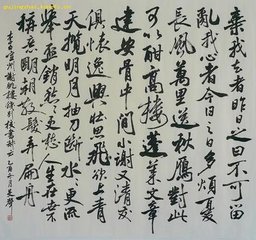 棄我去者昨日之日不可留
亂我心者今日之日多煩憂
長風萬里送秋雁對此
可以酣高樓蓬萊文章
建安骨中間小謝又清發
俱懷逸興壯思飛欲上青
天攬明月抽刀斷水水更流
舉杯銷愁愁更愁人生在世不
稱意明朝散髮弄扁舟
李白宣州謝朓樓餞別校書叔云